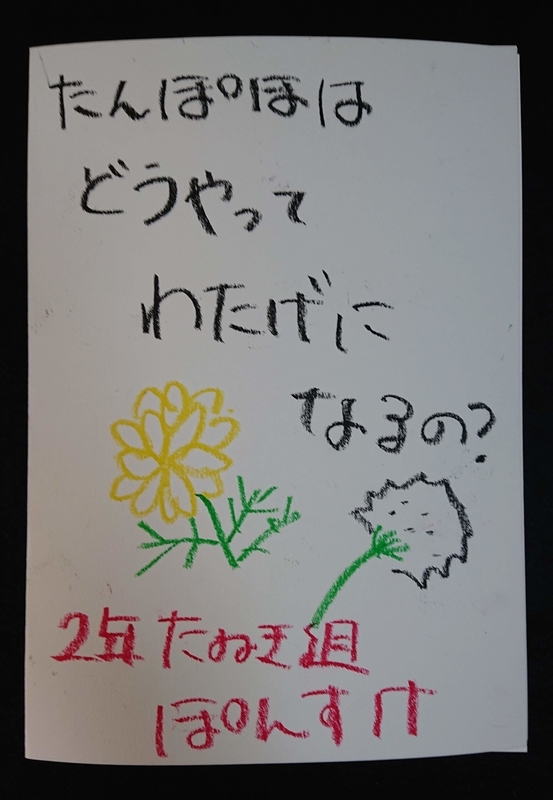 たんぽぽは
どうやって
わたげに
なるの?
2年たぬき組
ぽんすけ